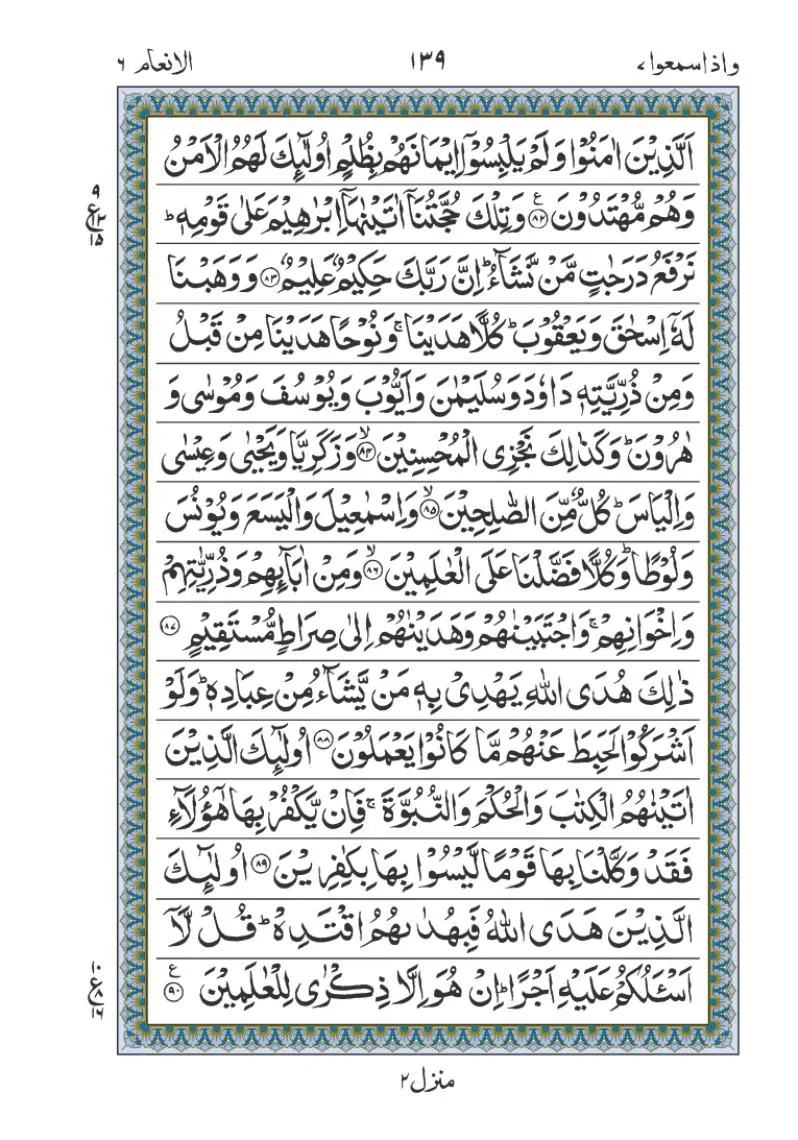 واذاسمعوا٧ ١٣٩ الانعام ٦
اَلَّذِیْنَ اٰمَنُوْا وَلَمْ یَلْبِسُوْۤا اِیْمَانَهُمْ بِظُلْمٍ اُولٰٓئِكَ لَهُمُ الْاَمْنُ
وَهُمْ مُّهْتَدُوْنَ ﴿۸۲﴾ ع وَتِلْكَ حُجَّتُنَاۤ اٰتَیْنٰهَاۤ اِبْرٰهِیْمَ عَلٰی قَوْمِهٖ ؕ
٩
ع
١٢
١٥
نَرْفَعُ دَرَجٰتٍ مَّنْ نَّشَآءُ ؕ اِنَّ رَبَّكَ حَكِیْمٌ عَلِیْمٌ ﴿۸۳﴾ وَوَهَبْنَا
لَهٗۤ اِسْحٰقَ وَیَعْقُوْبَ ؕ كُلًّا هَدَیْنَا ۚ وَنُوْحًا هَدَیْنَا مِنْ قَبْلُ
وَمِنْ ذُرِّیَّتِهٖ دَاوٗدَ وَسُلَیْمٰنَ وَاَیُّوْبَ وَیُوْسُفَ وَمُوْسٰی وَ
هٰرُوْنَ ؕ وَكَذٰلِكَ نَجْزِی الْمُحْسِنِیْنَ ﴿۸۴﴾ ۙ وَزَكَرِیَّا وَیَحْیٰی وَعِیْسٰی
وَاِلْیَاسَ ؕ كُلٌّ مِّنَ الصّٰلِحِیْنَ ﴿۸۵﴾ ۙ وَاِسْمٰعِیْلَ وَالْیَسَعَ وَیُوْنُسَ
وَلُوْطًا ؕ وَكُلًّا فَضَّلْنَا عَلَی الْعٰلَمِیْنَ ﴿۸۶﴾ ۙ وَمِنْ اٰبَآئِهِمْ وَذُرِّیّٰتِهِمْ
وَاِخْوَانِهِمْ ۚ وَاجْتَبَیْنٰهُمْ وَهَدَیْنٰهُمْ اِلٰی صِرَاطٍ مُّسْتَقِیْمٍ ﴿۸۷﴾
ذٰلِكَ هُدَی اللّٰهِ یَهْدِیْ بِهٖ مَنْ یَّشَآءُ مِنْ عِبَادِهٖ ؕ وَلَوْ
اَشْرَكُوْا لَحَبِطَ عَنْهُمْ مَّا كَانُوْا یَعْمَلُوْنَ ﴿۸۸﴾ اُولٰٓئِكَ الَّذِیْنَ
اٰتَیْنٰهُمُ الْكِتٰبَ وَالْحُكْمَ وَالنُّبُوَّةَ ۚ فَاِنْ یَّكْفُرْ بِهَا هٰۤؤُلَآءِ
فَقَدْ وَكَّلْنَا بِهَا قَوْمًا لَّیْسُوْا بِهَا بِكٰفِرِیْنَ ﴿۸۹﴾ اُولٰٓئِكَ
الَّذِیْنَ هَدَی اللّٰهُ فَبِهُدٰىهُمُ اقْتَدِهْ ؕ قُلْ لَّاۤ
اَسْـَٔلُكُمْ عَلَیْهِ اَجْرًا ؕ اِنْ هُوَ اِلَّا ذِكْرٰی لِلْعٰلَمِیْنَ ﴿۹۰﴾ ع
١٠
ع
٨
١٦
منزل٢